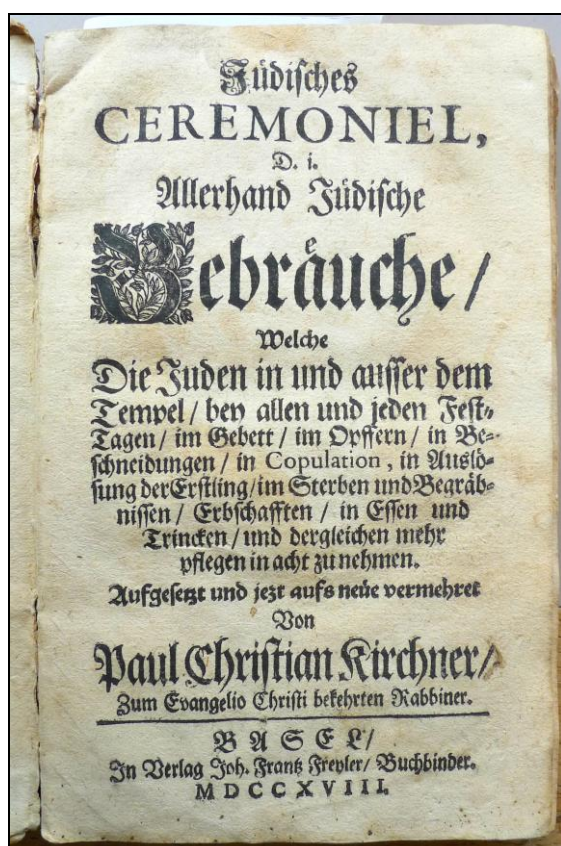 Jüdisches
CEREMONIEL,
D. i.
Allerhand Jüdische
Gebräuche /
Welche
Die Juden in und ausser dem
Tempel / bey allen und jeden Fest-
Tagen / im Gebett / im Opffern / in Be-
schneidungen / in Copulation, in Auslö-
sung der Erstling / im Sterben und Begräb-
nissen / Erbschafften / in Essen und
Trincken / und dergleichen mehr
pflegen in acht zu nehmen.
Aufgesetzt und jezt aufs neüe vermehret
Von
Paul Christian Kirchner /
Zum Evangelio Christi bekehrten Rabbiner.
BASEL /
In Verlag Joh. Frantz Freyler / Buchbinder.
MDCCXVIII.